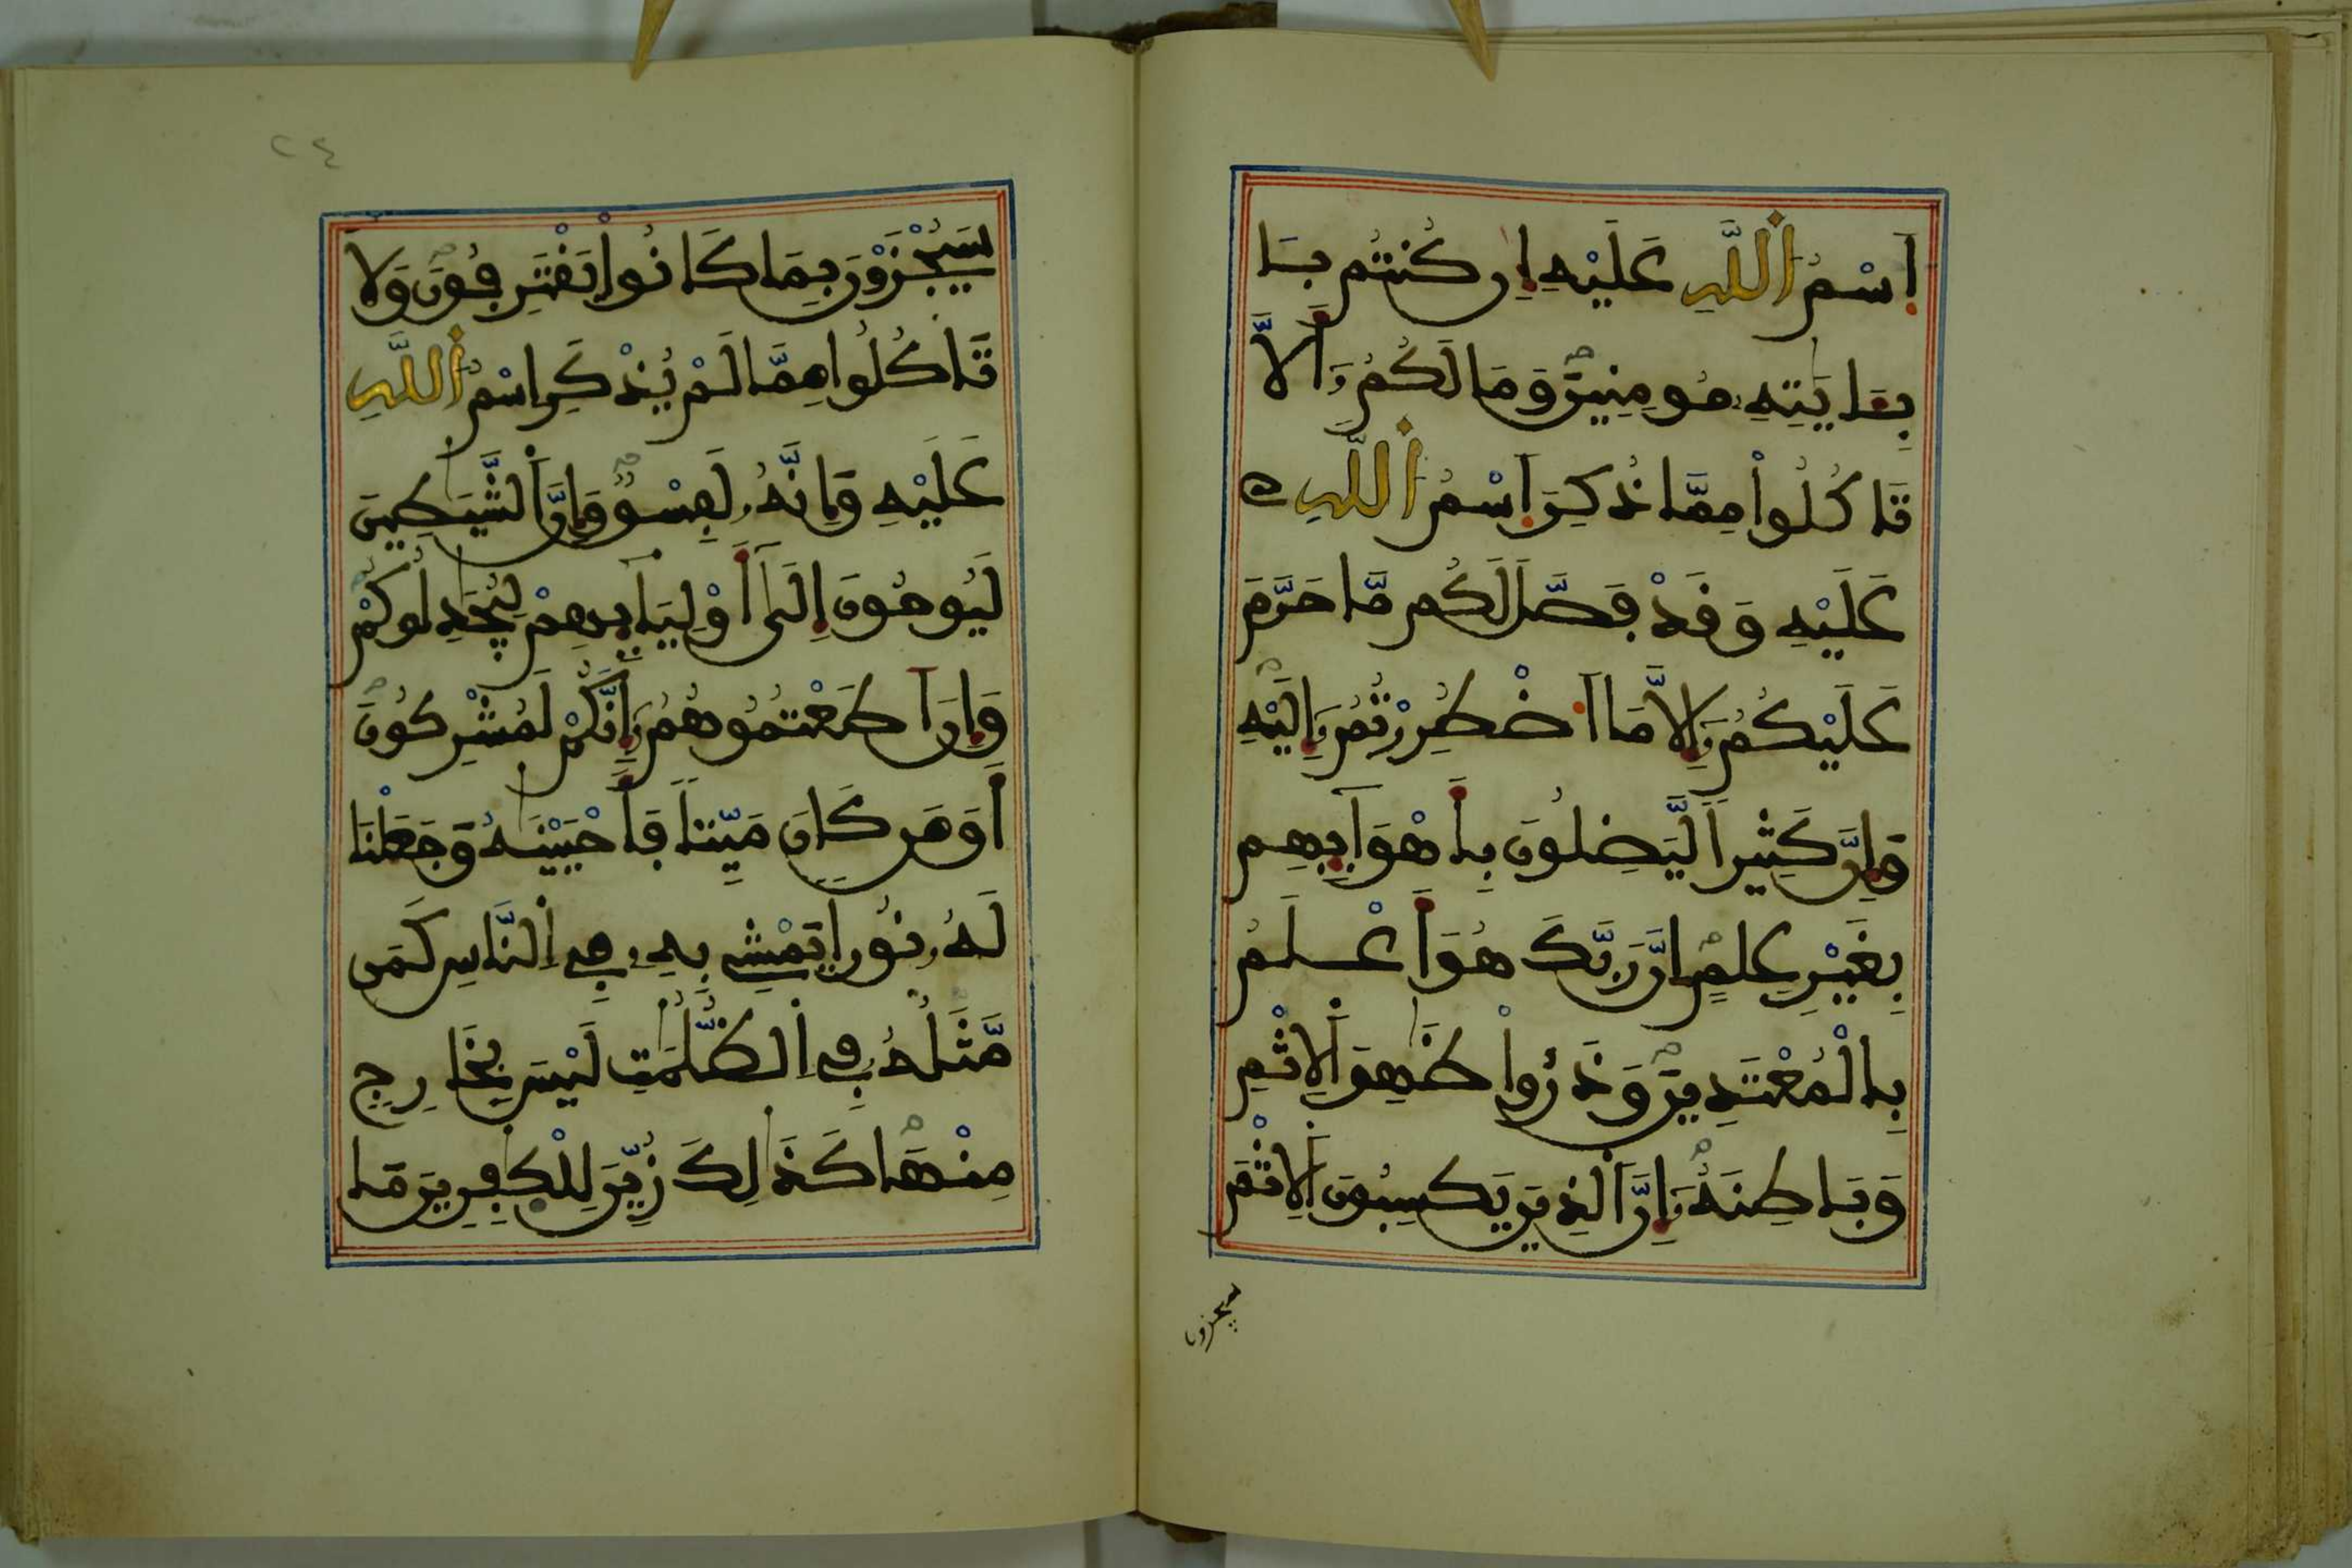 اِسْمُ اُللَّهِ عَلَيْهِ إِن كُنتُم بِـَٔا
بِـَٔايَٰتِهِۦ مُومِنِينَ وَمَا لَكُمُۥٓ أَلَّا
تَاكُلُواْ مِمَّا ذُكِرَ اَسْمُ اُللَّهِ
عَلَيْهِ وَقَدْ فَصَّلَ لَكُم مَّا حَرَّمَ
عَلَيْكُمُۥٓ إِلَّا مَا اَضْطُرِرْتُمُۥٓ إِلَيْهِ
وَإِنَّ كَثِيراً لَّيَضِلُّونَ بِأَهْوَآئِهِم
بِغَيْرِ عِلْمٍ اِنَّ رَبَّكَ هُوَ أَعْلَمُ
بِالْمُعْتَدِينَ وَذَرُواْ ظَٰهِرَ اَلِاثْمِ
وَبَاطِنَهُۥٓ إِنَّ اَلذِينَ يَكْسِبُونَ اَلِاثْمَ
سيجزون
٢٤
سَيُجْزَوْنَ بِمَا كَانُواْ يَقْتَرِفُونَ وَلَا
تَاكُلُواْ مِمَّا لَمْ يُذْكَرِ اِسْمُ اُللَّهِ
عَلَيْهِ وَإِنَّهُۥ لَفِسْقٌ وَإِنَّ اَلشَّيَٰطِينَ
لَيُوحُونَ إِلَىٰٓ أَوْلِيَآئِهِمْ لِيُجَٰدِلُوكُمْ
وَإِنَ اَطَعْتُمُوهُمُۥٓ إِنَّكُمْ لَمُشْرِكُونَ
أَوَمَن كَانَ مَيِّتاً فَأَحْيَيْنَٰهُ وَجَعَلْنَا
لَهُۥ نُوراً يَمْشِے بِهِۦ فِے اِلنَّاسِ كَمَن
مَّثَلُهُۥ فِے اِلظُّلُمَٰتِ لَيْسَ بِخَارِجٍ
مِّنْهَا كَذَٰلِكَ زُيِّنَ لِلْكَٰفِرِينَ مَا